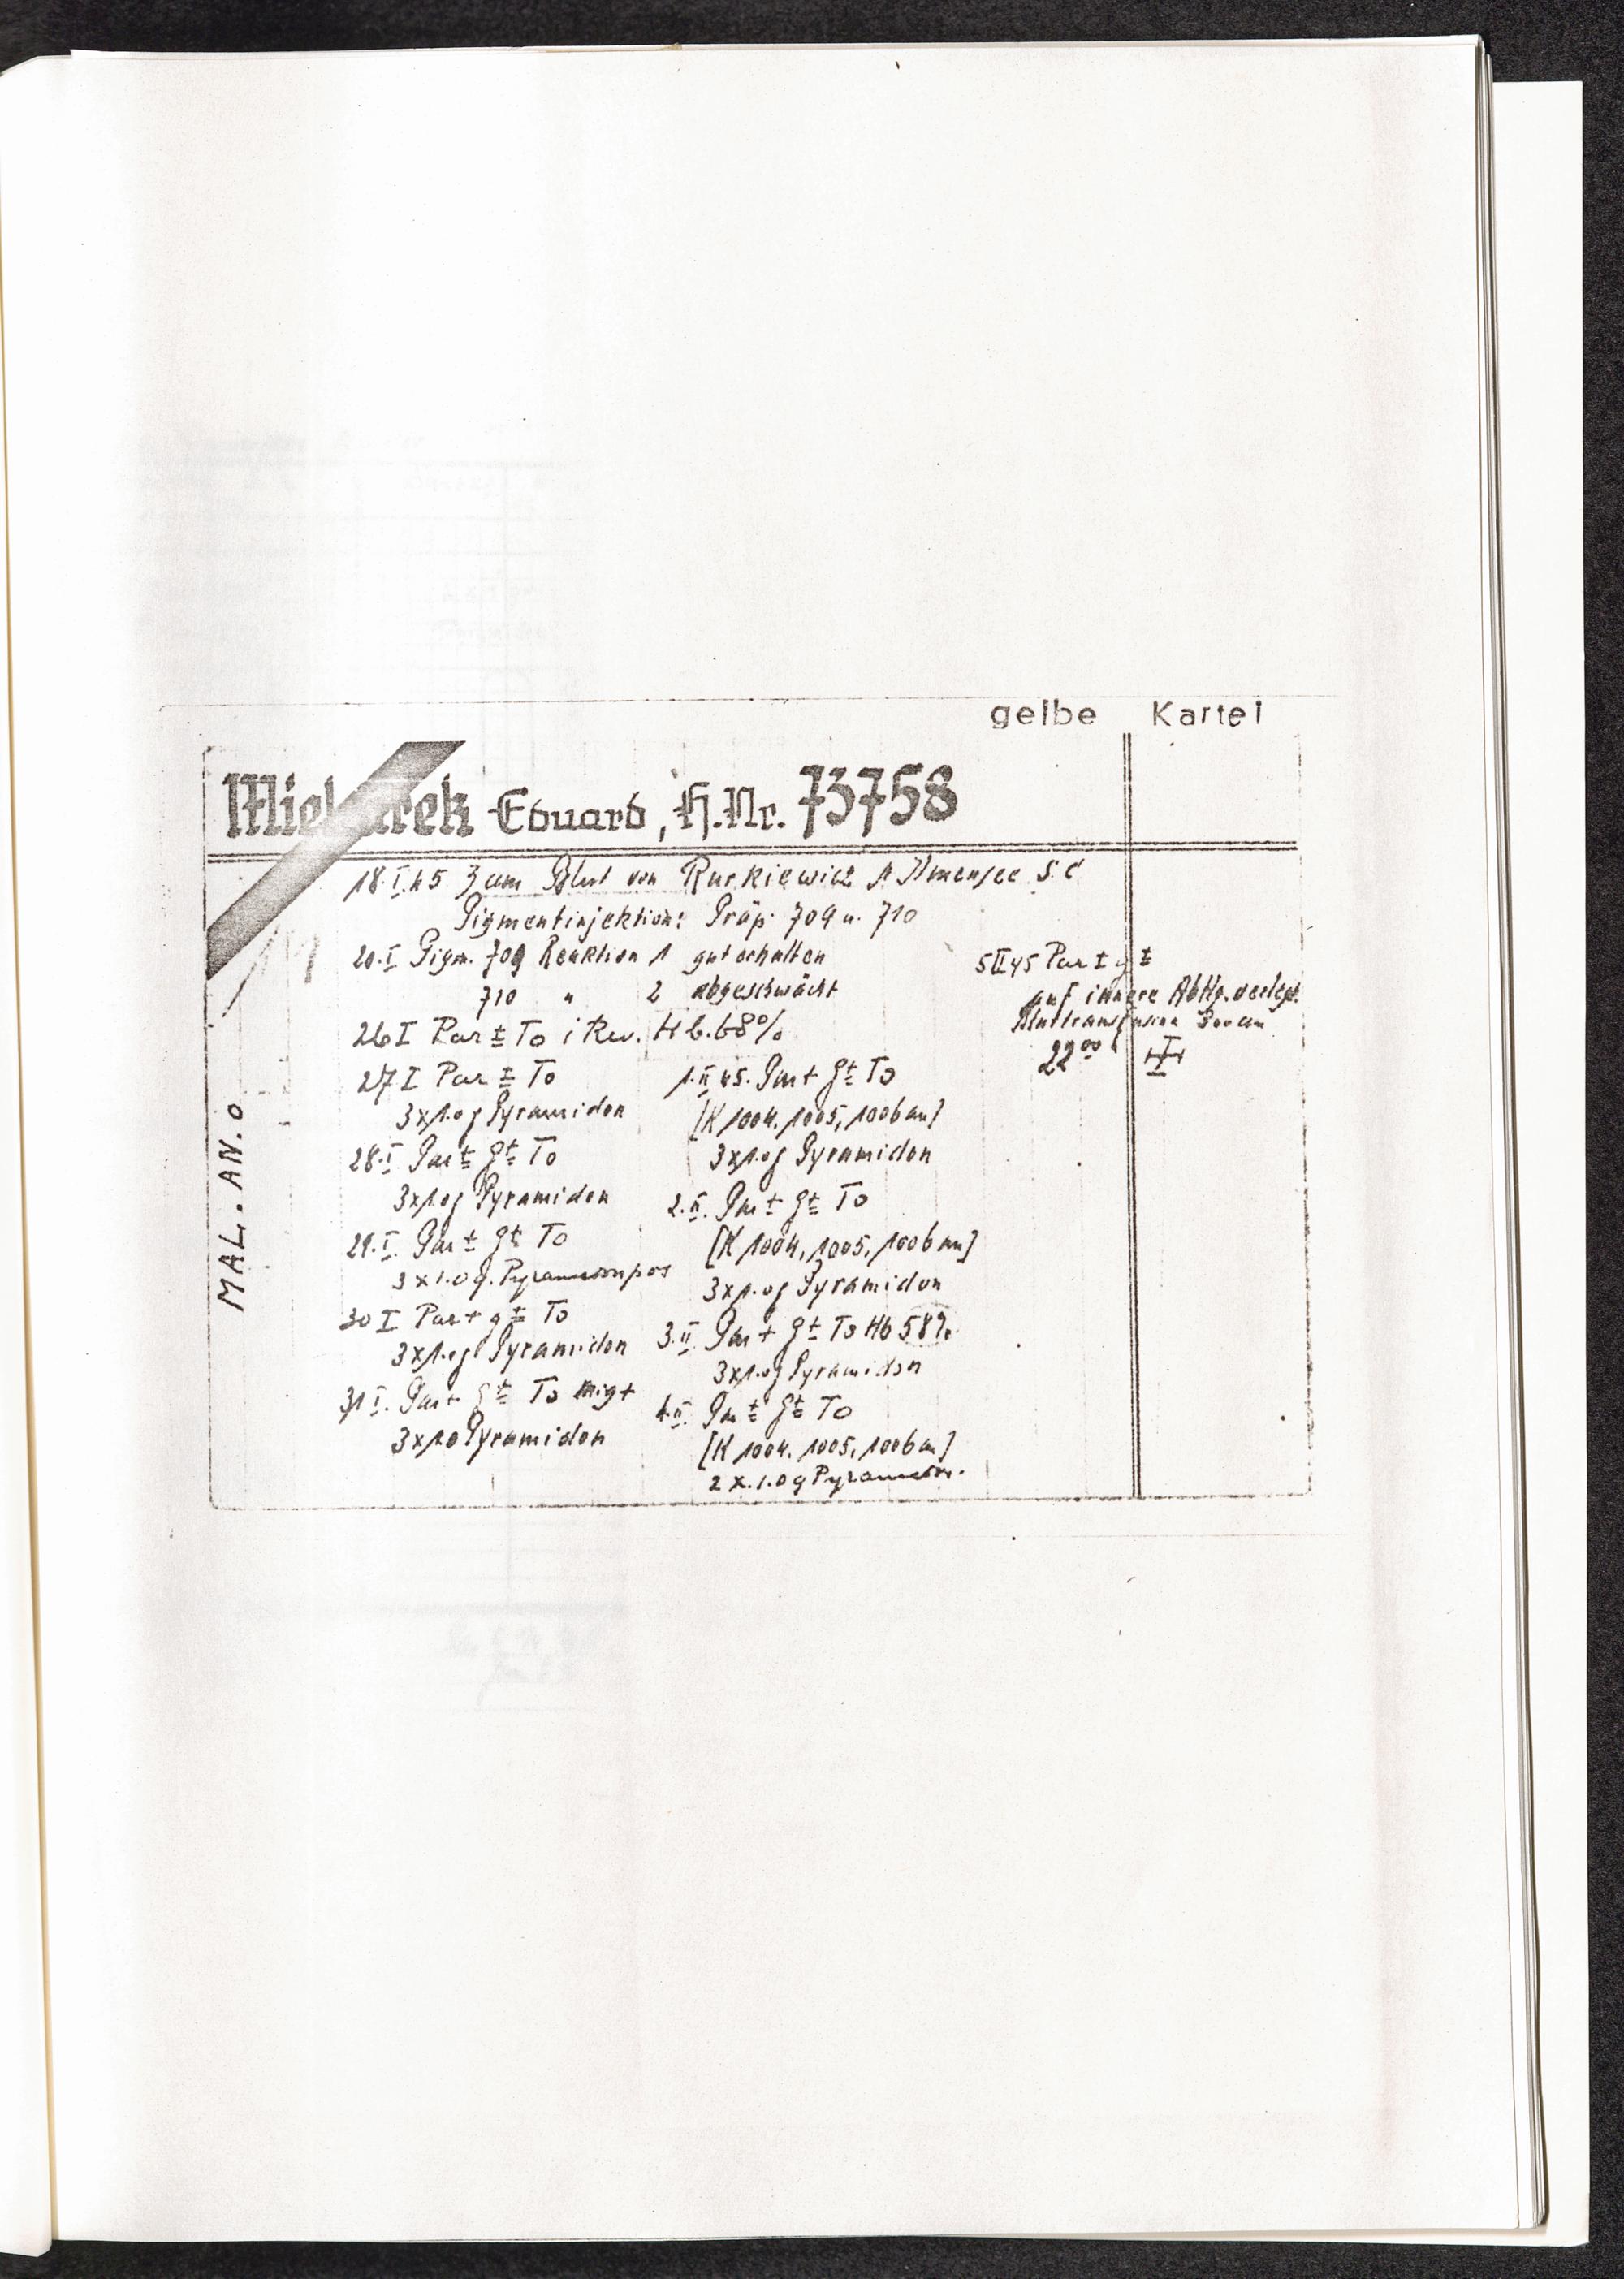 gelbe Kartei
Eduard, H.Nr. 73758
18.I.45 3 ccm Blut von Rurkiewicz A Ilmensee S.C
Pigmentinjektion: Präp. 709 u. 710
20.I Pigm. 709 Reaktion 1 gut erhalten
710 " 2 abgeschwächt
26 I Par ± To i Rev. Hb. 68%
27 I Par ± To
3x1.0g Pyramidon
28.I Par ± g± To
3x1.0g Pyramidon
29.I. Par ± g± To
3x1.0g.
30 I Par + g ± To
3x1.0g Pyramidon
31 I. Par + g ± To
3x1.0 Pyramidon
1.II.45. Par + g± To
[K 1004, 1005, 1006 an]
3x1.0g Pyramidon
2.II. Par ± g± To
[K 1004, 1005, 1006 an]
3x1.0g Pyramidon
3.II Par + g± To Hb 58%
3x1.0g Pyramidon
4.II. Par ± g± To
[K 1004, 1005, 1006 an]
2x1.0g Pyramidon.
5 II 45 Par ± g ±
auf innere Abtlg. verlegt.
Bluttransfusion 300 ccm
22⁰⁰
MAL. AN. O